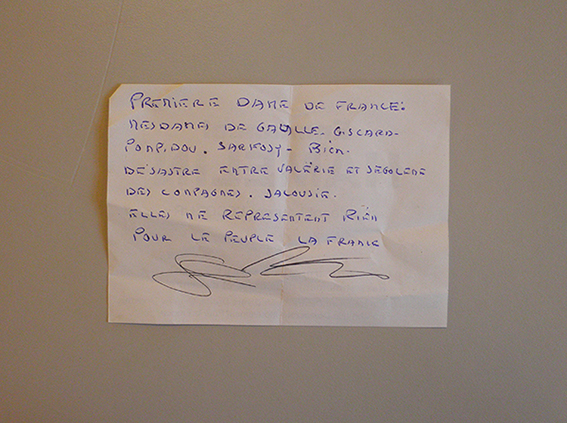 PREMIERE DAME DE FRANCE:
MESDAMES DE GAULLE - GISCARD -
POMPIDOU. SARKOSY - BIEN -
DESASTRE ENTRE VALERIE ET SEGOLENE
DES COMPAGNES. JALOUSIE.
ELLES NE REPRESENTENT RIEN
POUR LE PEUPLE LA FRANCE